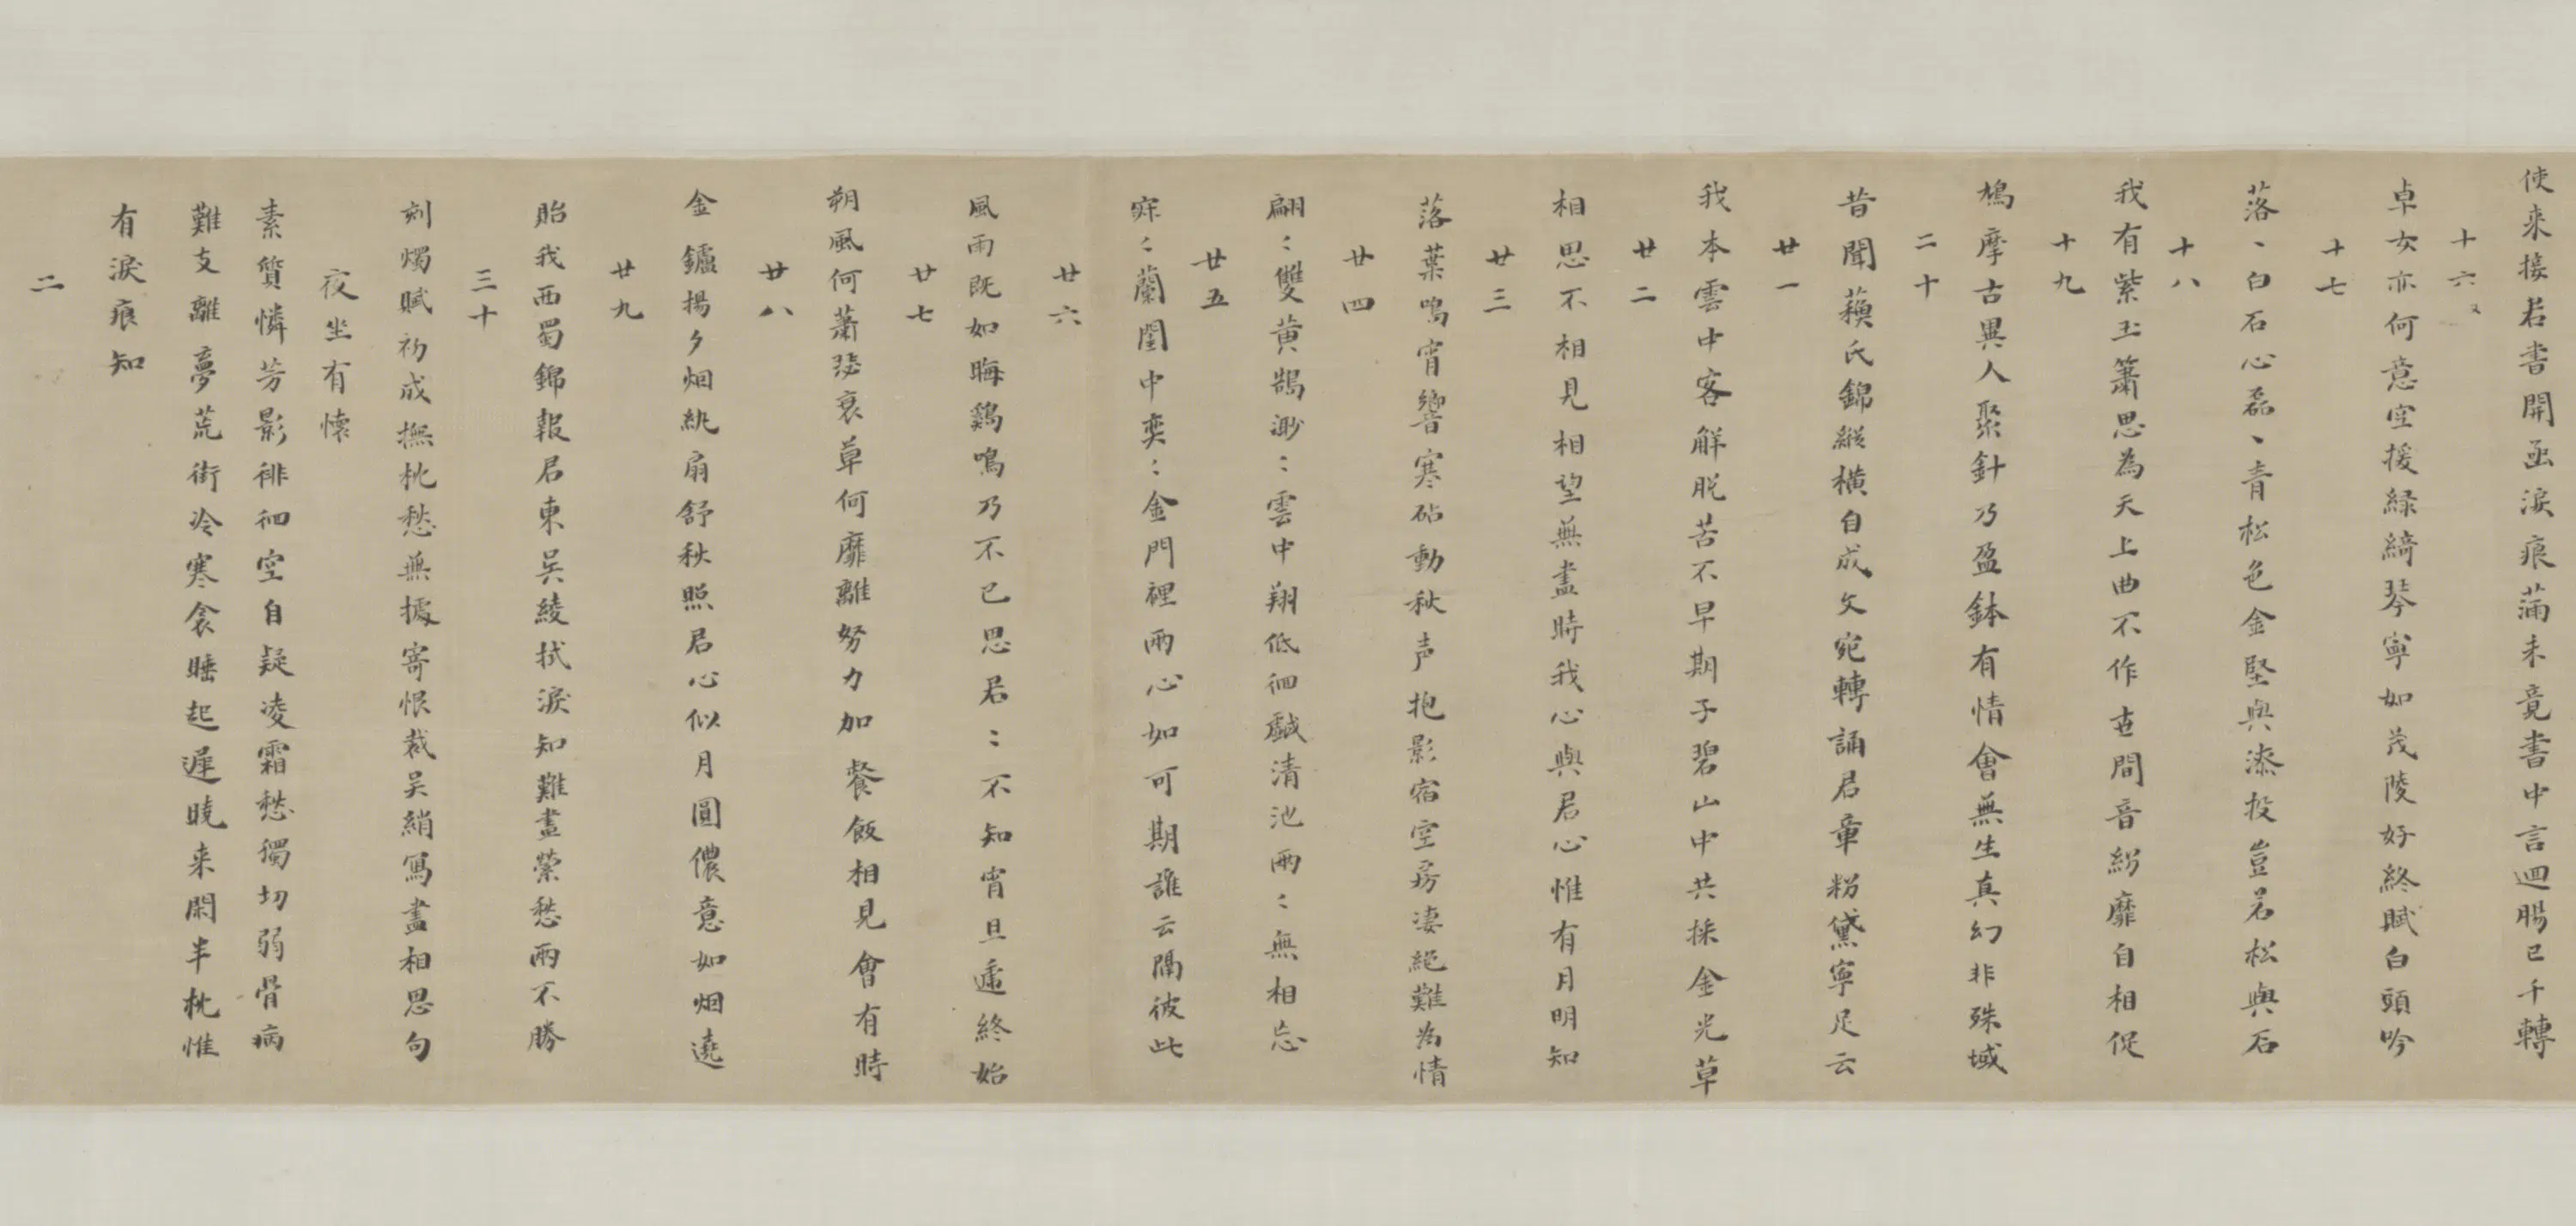 使来接君書開函淚痕蒲未竟書中言迴腸已千轉
十六
卓女亦何意空援緑綺琴寧如茂陵好終賦白頭吟
十七
落、白石心磊、青松色金堅與漆投豈若松與石
十八
我有紫玉簫思為天上曲不作世間音紛靡自相促
十九
鳩摩古異人聚針乃盈鉢有情會無生真幻非殊域
二十
昔聞蘓氏錦縱横自成文宛轉誦君章粉黛寧足云
廿一
我本雲中客解脱苦不早期子碧山中共採金光草
廿二
相思不相見相望無盡時我心與君心惟有月明知
廿三
落葉鳴宵響寒砧動秋声抱影宿空房淒絕難為情
廿四
翩〻雙黄鵠渺〻雲中翔低徊戯清池兩〻無相忘
廿五
寂〻蘭閨中奕〻金門裡兩心如可期誰云隔彼此
廿六
風雨既如晦鷄鳴乃不已思君〻不知宵旦遞終始
廿七
朔風何蕭瑟衰草何靡離努力加餐飯相見會有時
廿八
金鑪揚夕烟紈扇舒秋照君心似月圓儂意如烟遶
廿九
貽我西蜀錦報君東吴綾拭淚知難盡縈愁兩不勝
三十
刻燭賦初成撫枕愁無據寄恨裁吴綃寫盡相思句
夜坐有懷
素質憐芳影徘徊空自疑凌霜愁獨切弱骨病
難支離夢荒街冷寒衾睡起遲曉来閑半枕惟
有淚痕知
二